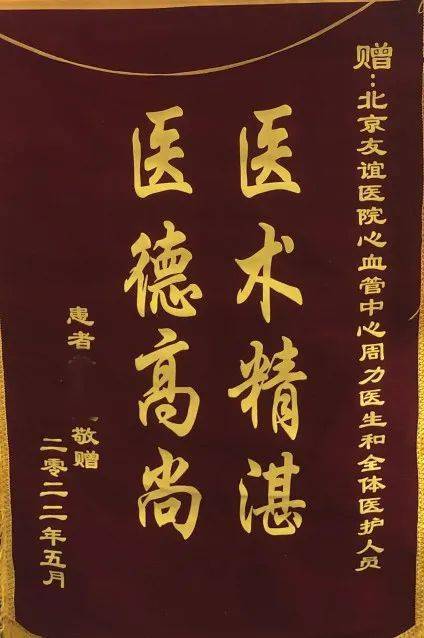 赠：北京友谊医院心血管中心周力医生和全体医护人员
医术精湛
医德高尚
患者 敬赠
二零二二年五月